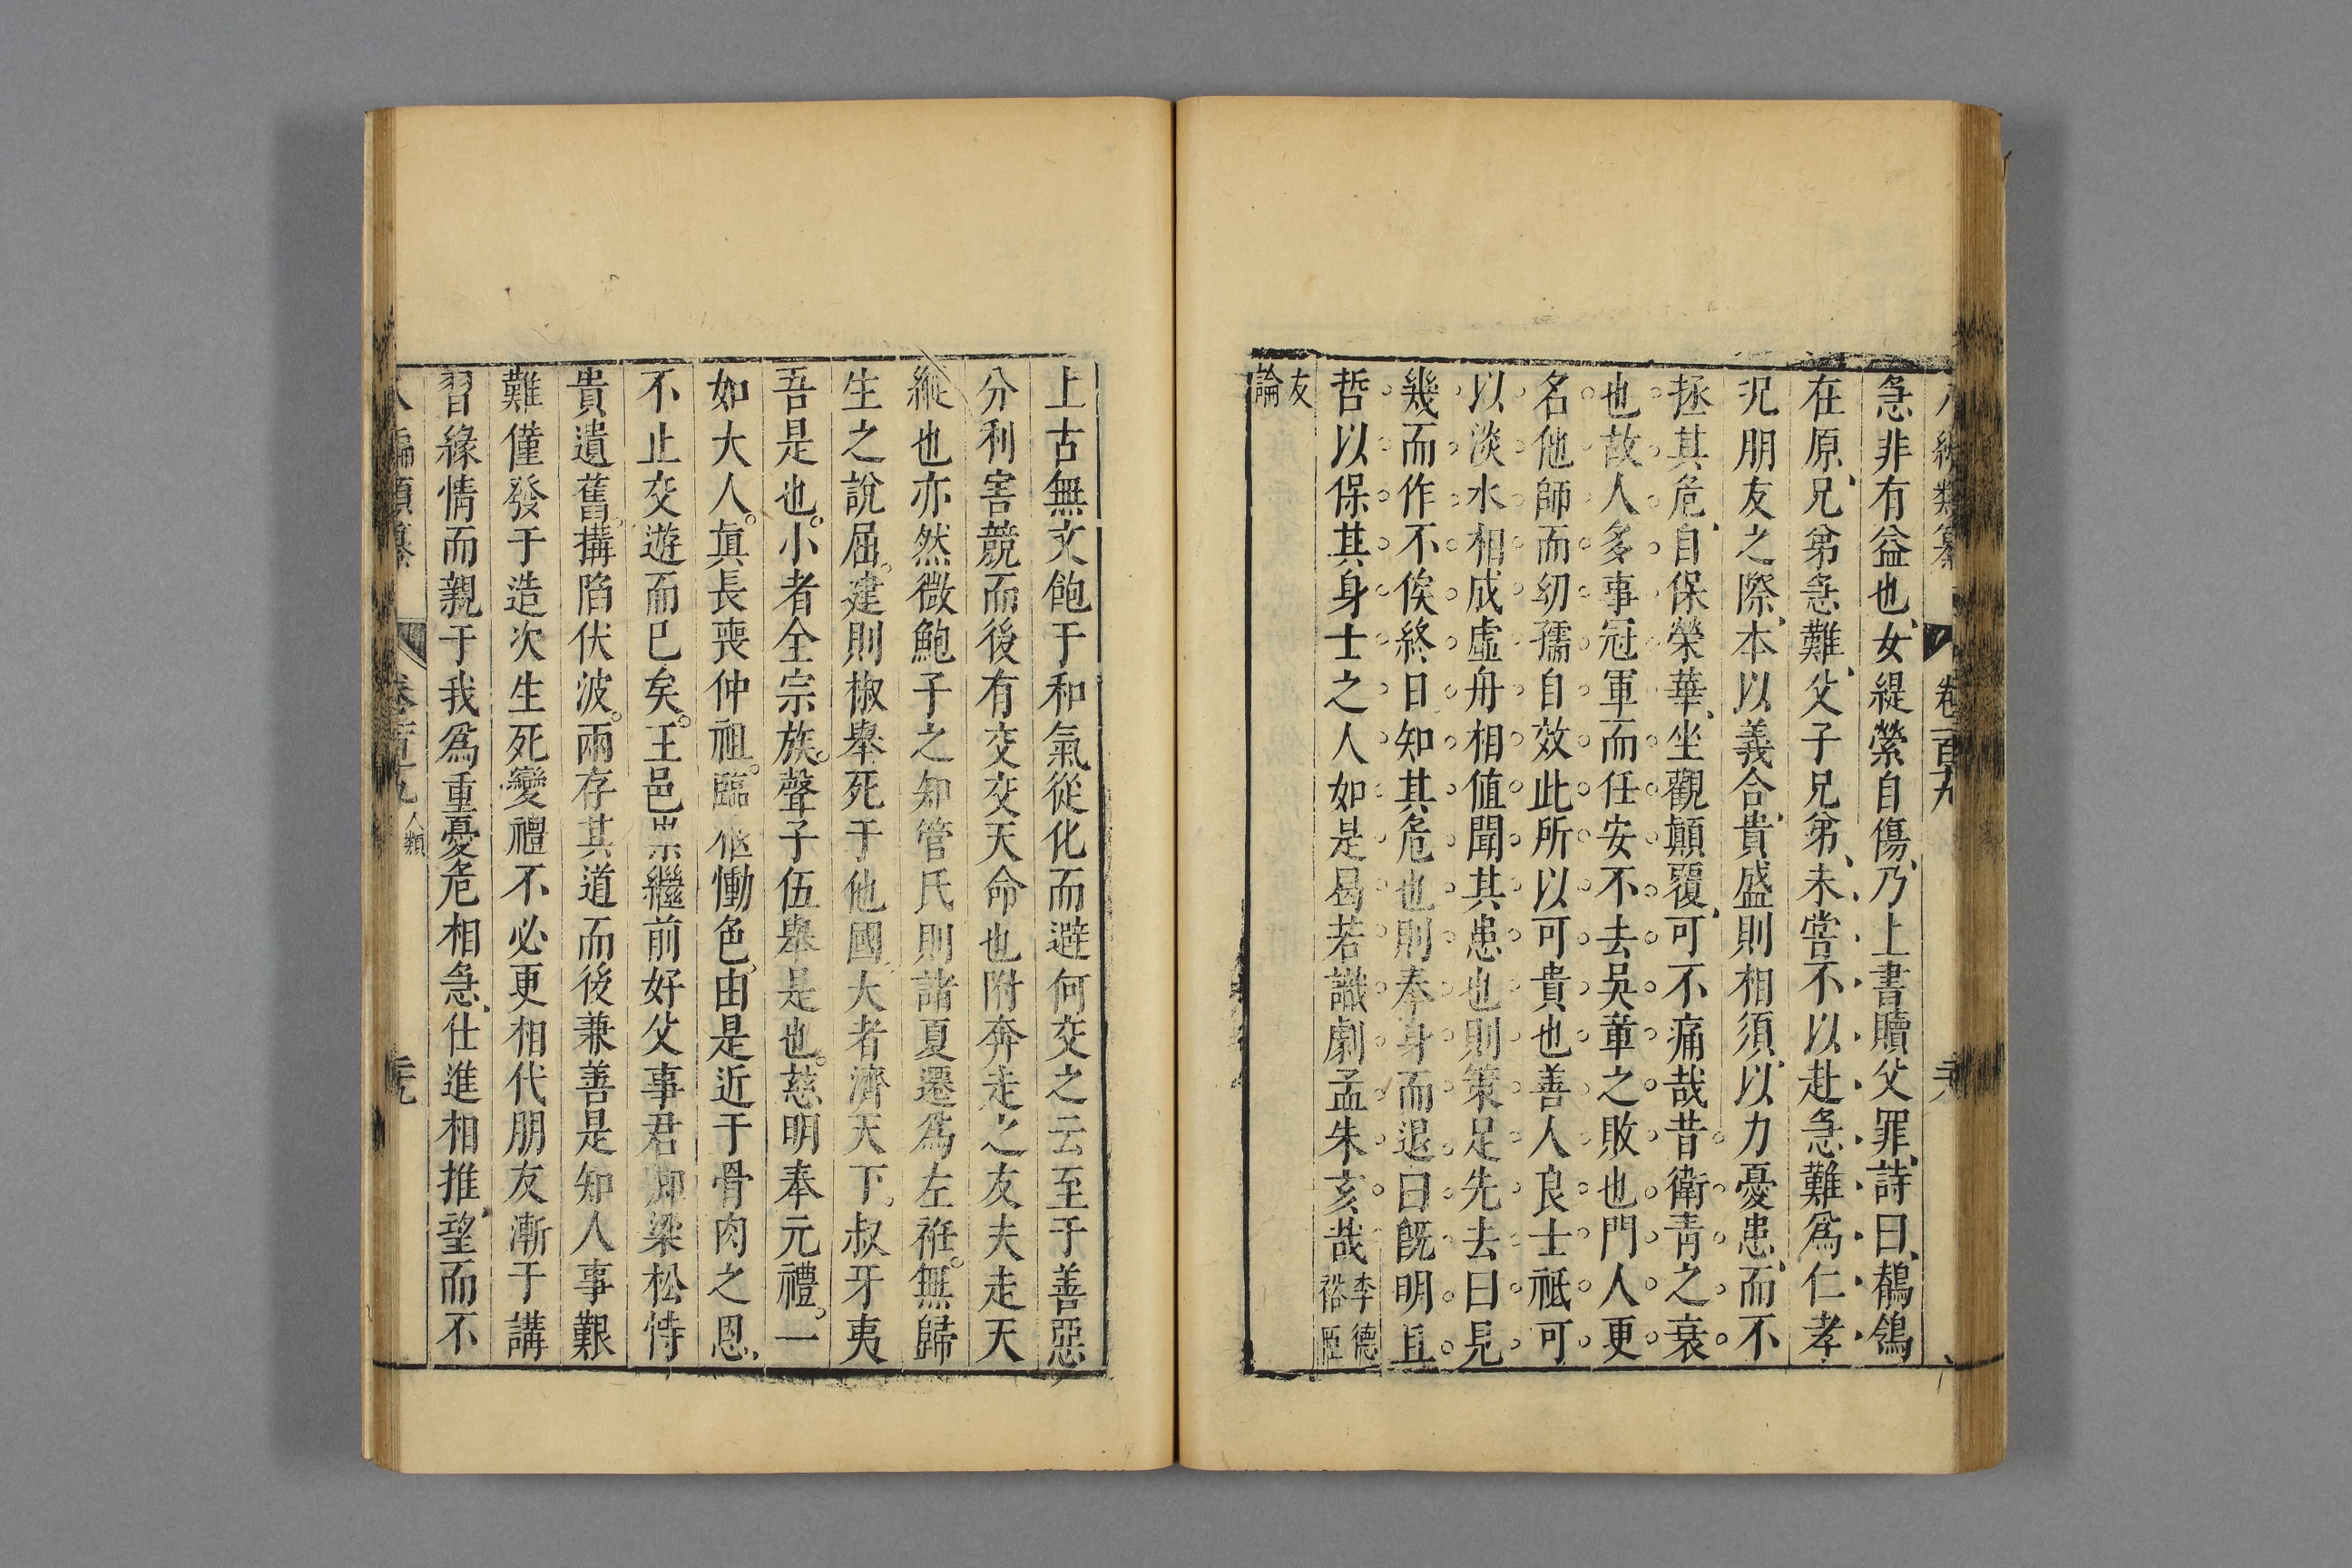 八編類纂 卷一百九 六
急非有益也女緹縈自傷乃上書贖父罪詩曰鶺鴒
在原兄弟急難父子兄弟未嘗不以赴急難爲仁孝
況朋友之際本以義合貴盛則相須以力憂患而不
拯其危自保榮華坐觀顚覆可不痛哉昔衛青之衰
也故人多事冠軍而任安不去吳章之敗也門人更
名他師而幼孺自效此所以可貴也善人良士祗可
以淡水相成虛舟相值聞其患也則策足先去曰見
幾而作不俟終日知其危也則奉身而退曰旣明且
哲以保其身士之人如是曷若識劇孟朱亥哉李德裕
友論
上古無文飽于和氣從化而避何交之云至于善惡
分利害競而後有交交天命也附奔走之友夫走天
縱也亦然微鮑子之知管氏則諸夏遷爲左袵無歸
生之說屈建則椒舉死于他國大者濟天下叔牙夷
吾是也小者全宗族聲子伍舉是也慈明奉元禮一
如大人眞長喪仲祖臨柩慟色由是近于骨肉之恩
不止交遊而已矣王邑崇繼前好父事君卿梁松恃
貴遺舊搆陷伏波兩存其道而後兼善是知人事艱
難僅發于造次生死變禮不必更相代朋友漸于講
習緣情而親于我爲重憂危相急仕進相推望而不
八編類纂 卷一百九 人類